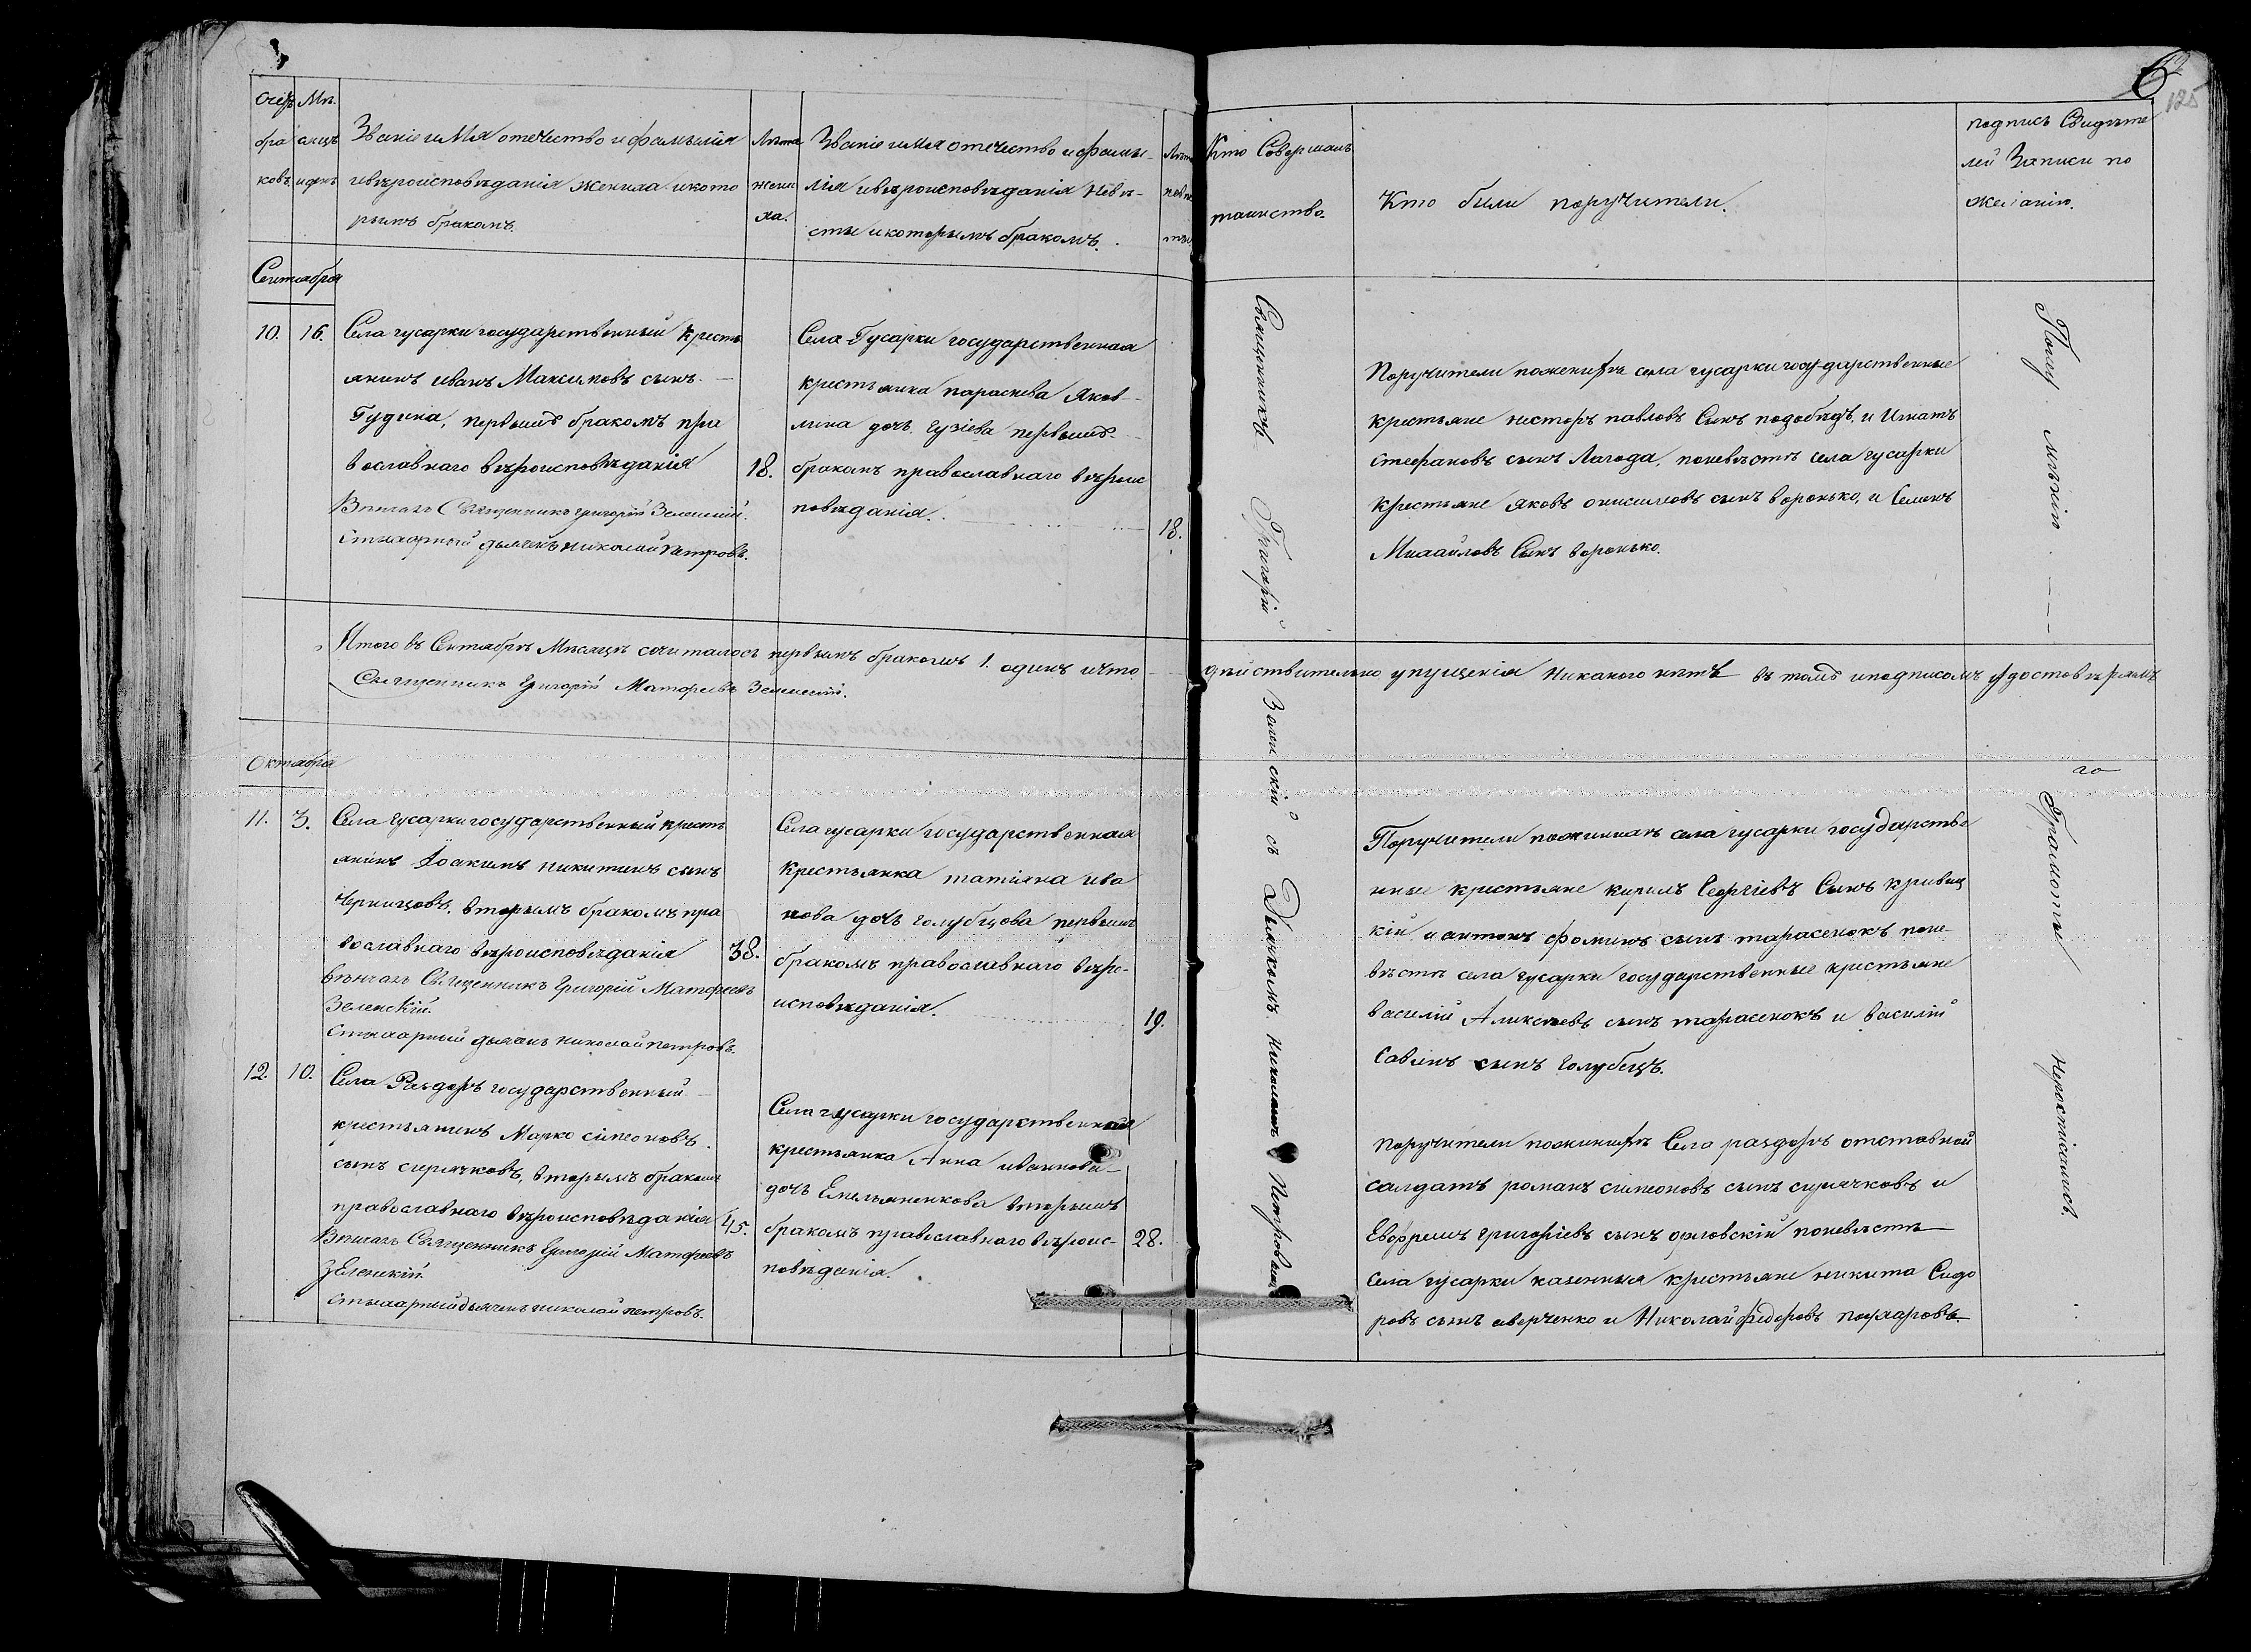 6
125
Счетъ бра ковъ.
Мѣ. сяцъ и день
Званіе имя отечество и фамилія
и вѣроисповѣданія жениха и кото
рымъ бракомъ.
Лѣта жени ха.
Званіе имя отечество и фами-
лія и вѣроисповѣданія невѣ-
сты и которымъ бракомъ.
Лѣта невѣ сты
Кто Совершалъ
таинство.
Кто были поручители.
подпись Свидѣте
лей Записи по
желанію.
Сентября
10. 16.
Села гусарки государственный кресть
янинъ иванъ Максимовъ сынъ
Гудина, первымъ бракомъ пра
вославнаго вѣроисповѣданія
18.
Вѣнчалъ Священникъ григорій Зеленскій.
Стихарный дьячекъ николай петровъ.
Села Гусарки государственная
крестьянка параскева Яков
лина дочь гузіева первымъ
бракомъ православнаго вѣроис
повѣданія.
18.
Поручители по женихѣ села гусарки государственные
крестьяне несторъ павловъ Сынъ подобѣдъ, и Игнатъ
стефановъ сынъ Лагода, по невѣстѣ села гусарки
крестьяне яковъ онисимовъ сынъ воронько, и Семенъ
Михайловъ Сынъ воронько.
Итого въ Сентябрѣ Мѣсяцѣ сочиталось первымъ бракомъ 1. одинъ и что дѣйствительно упущенія никакого нѣтъ въ томъ и подписомъ удостовѣряемъ
Священникъ Григорій Матфеевъ Зеленскій.
Октября
11. 3.
Села гусарки государственный кресть
янинъ Іоакимъ никитинъ сынъ
Черницовъ, вторымъ бракомъ пра
вославнаго вѣроисповѣданія
38.
вѣнчалъ Священникъ Григорій Матфеевъ
Зеленскій.
Стихарный дьячекъ николай петровъ.
Села гусарки государственная
крестьянка татіяна ива
нова дочь голубцова первымъ
бракомъ православнаго вѣро-
исповѣданія.
19.
Поручители по женихѣ села гусарки государстве
нные крестьяне кирилъ Георгіевъ Сынъ кривиц
кій и антонъ фоминъ сынъ тарасенокъ по не-
вѣстѣ села гусарки государственные крестьяне
василій Аликсѣевъ сынъ тарасенокъ и василій
Савинъ сынъ голубецъ.
12. 10.
Села Раздоръ государственный
крестьянинъ Марко симеоновъ
сынъ сирячковъ, вторымъ бракомъ
православнаго вѣроисповѣданія
45.
Вѣнчалъ Священникъ Григорій Матфеевъ
Зеленскій.
Стихарный дьячекъ николай петровъ.
Села гусарки государственная
крестьянка Анна иванова
дочь Емельяненкова вторымъ
бракомъ православнаго вѣроис-
повѣданія.
28.
Поручители по женихѣ Села раздоръ отставной
салдатъ романъ симеоновъ сынъ сирячковъ и
Евфремъ григоріевъ сынъ орловскій по невѣстѣ
села гусарки казенныя крестьяне никита Сидо
ровъ сынъ аверченко и Николай фидоровъ
Священникъ Григорій Зеленскій съ Дьячкомъ николаемъ Петровымъ
Грамоты